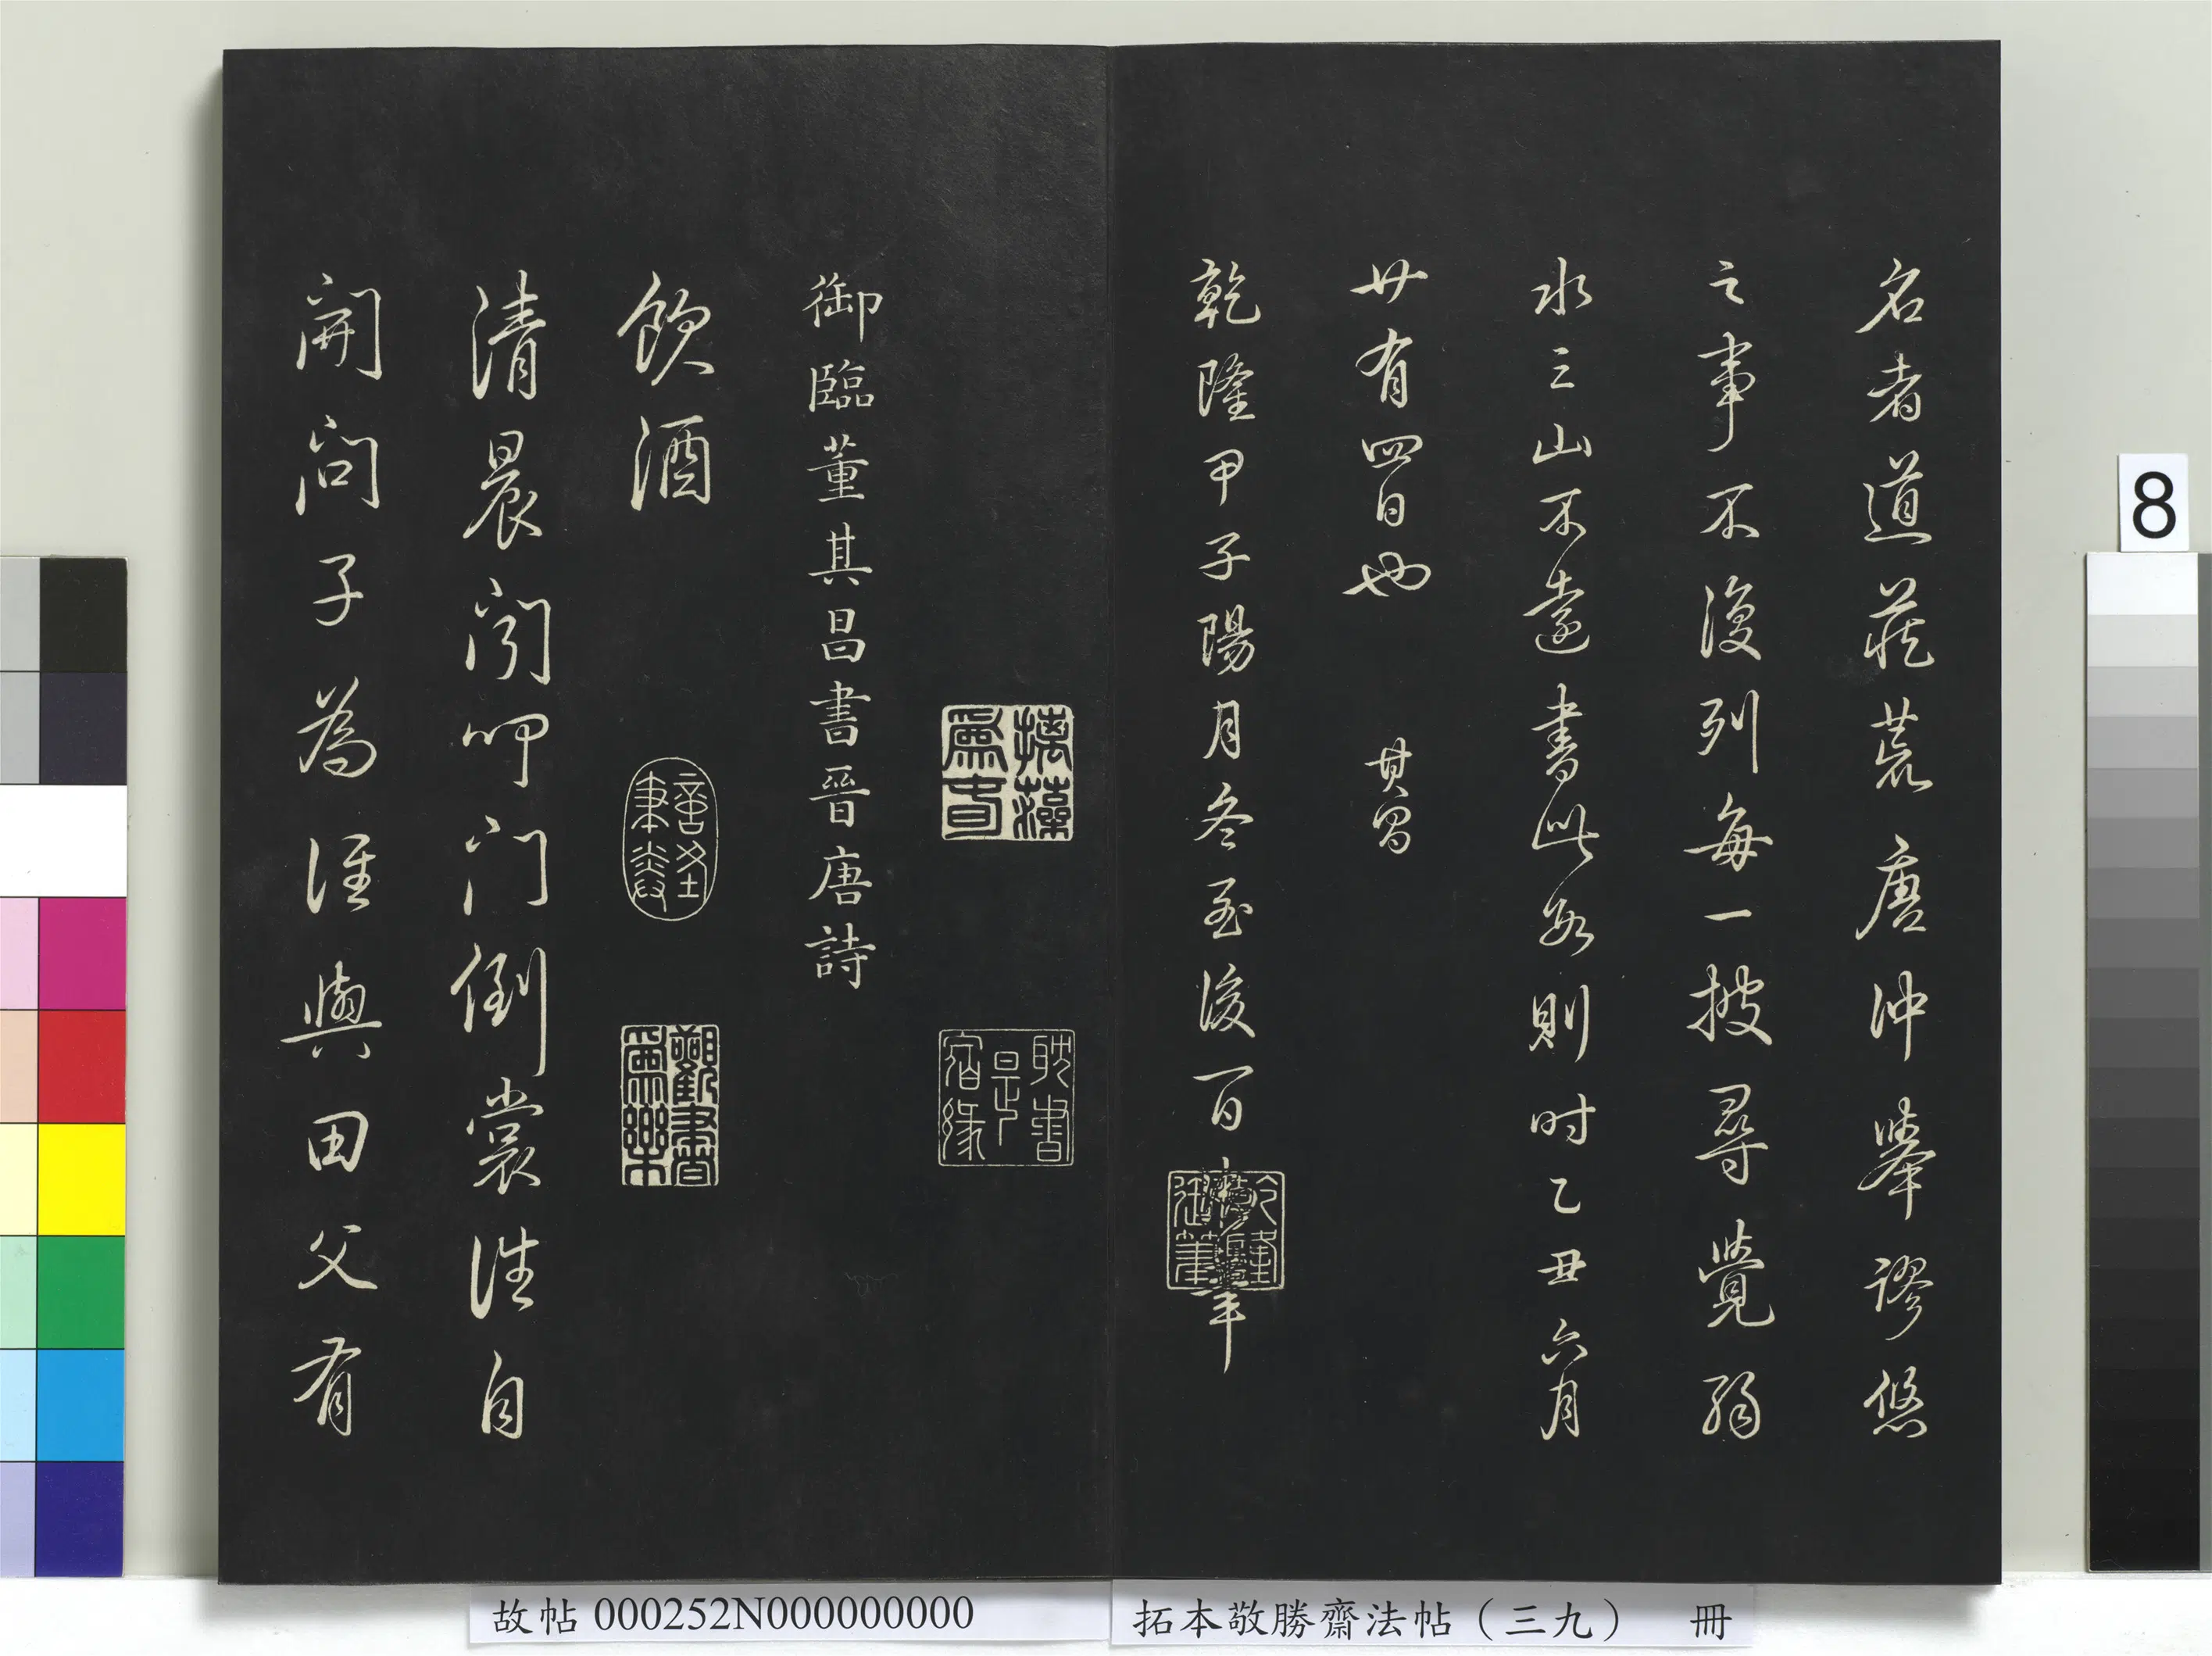 名者道藏荒唐沖舉謬悠
之事不復列每一披尋覺弱
水三山不遠書此數則時乙丑六月
廿有四日也 其昌
乾隆甲子陽月冬至後一日
乾隆御筆
摛藻為春
耽書是宿緣
御臨董其昌書晉唐詩
飲酒
觀書為樂
清晨聞叩門倒裳往自
開問子為誰與田父有
8
故帖 000252N000000000
拓本敬勝齋法帖（三九） 冊